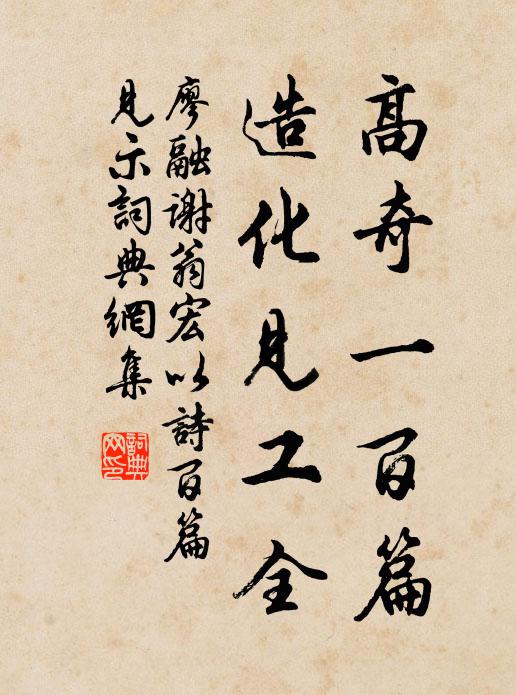 高奇一百篇
造化見工全
廖融謝翁宏以詩百篇
見示詞典網集
詞典網印